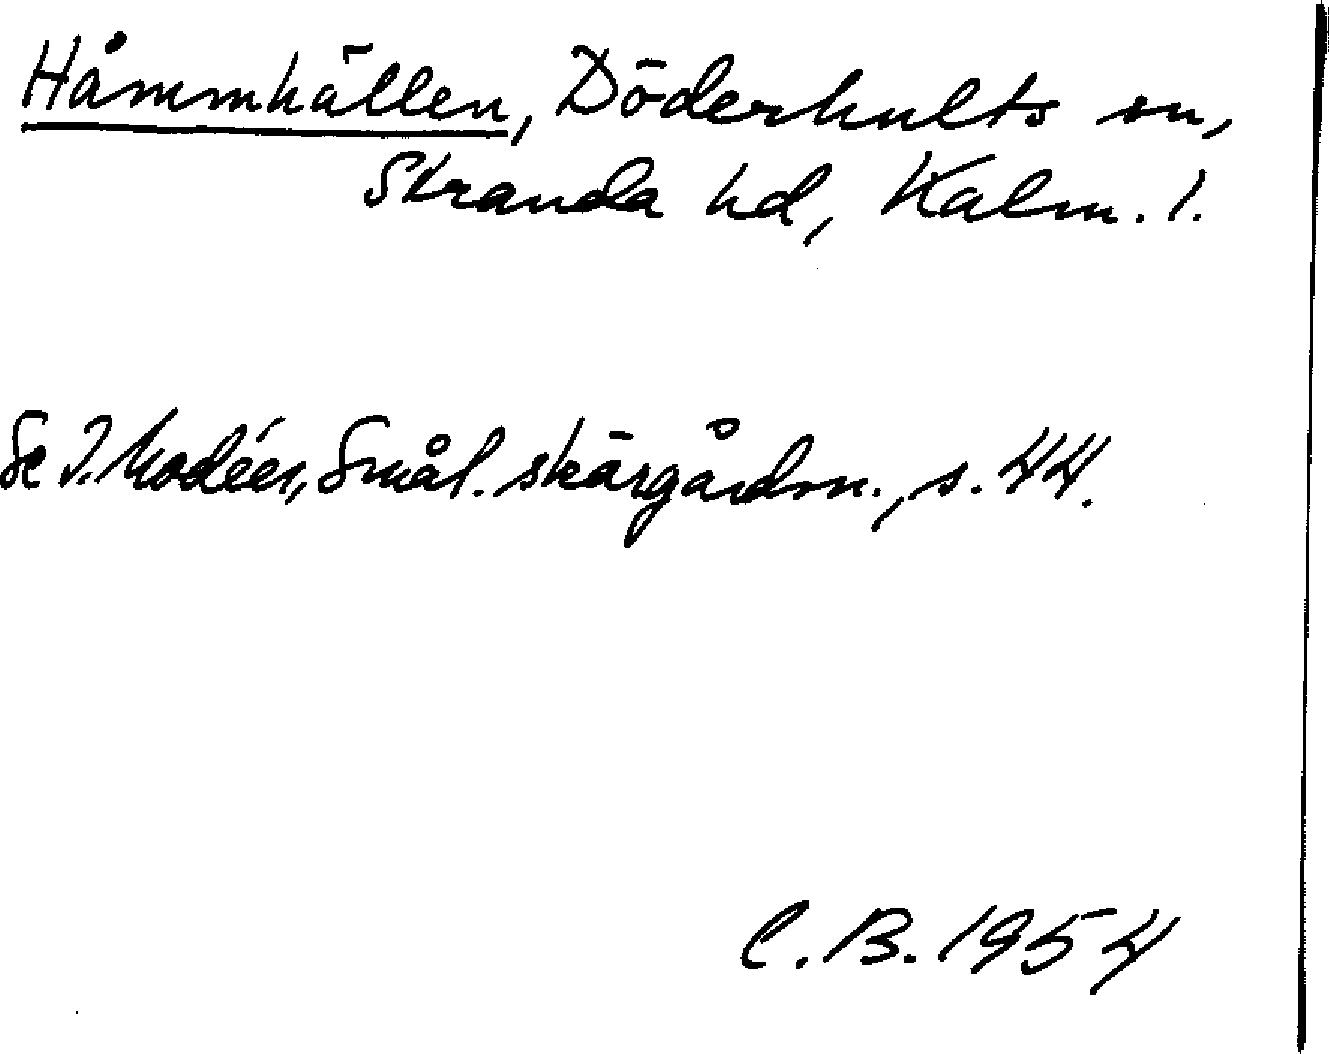 Håmmhällen, Döderhults sn,
Stranda hd, Kalm. l.
Se I. Modéer, Smål. skärgårdsn., s. 44.
C. B. 1954